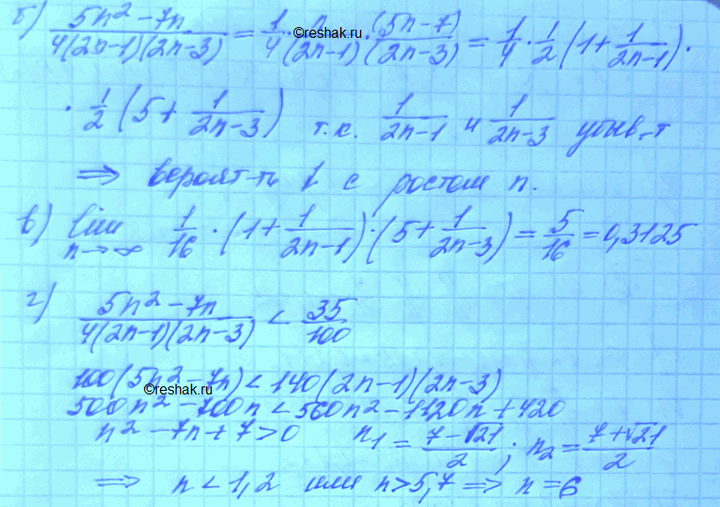 б) (5n² − 7n)/(4(2n−1)(2n−3)) = 1/4 · n/(2n−1) · (5n−7)/(2n−3) = 1/4 · 1/2 (1 + 1/(2n−1)) ·
©reshak.ru
· 1/2 (5 + 1/(2n−3)) т.к. 1/(2n−1) и 1/(2n−3) убыв-т
⇒ вероят-ть ↓ с ростом n.
в) lim n→∞ 1/16 · (1 + 1/(2n−1)) · (5 + 1/(2n−3)) = 5/16 = 0,3125
г) (5n² − 7n)/(4(2n−1)(2n−3)) < 35/100
100(5n² − 7n) < 140(2n−1)(2n−3)
©reshak.ru
500n² − 700n < 560n² − 1120n + 420
n² − 7n + 7 > 0 n₁ = (7−√21)/2 ; n₂ = (7+√21)/2
⇒ n < 1,2 или n > 5,7 ⇒ n = 6